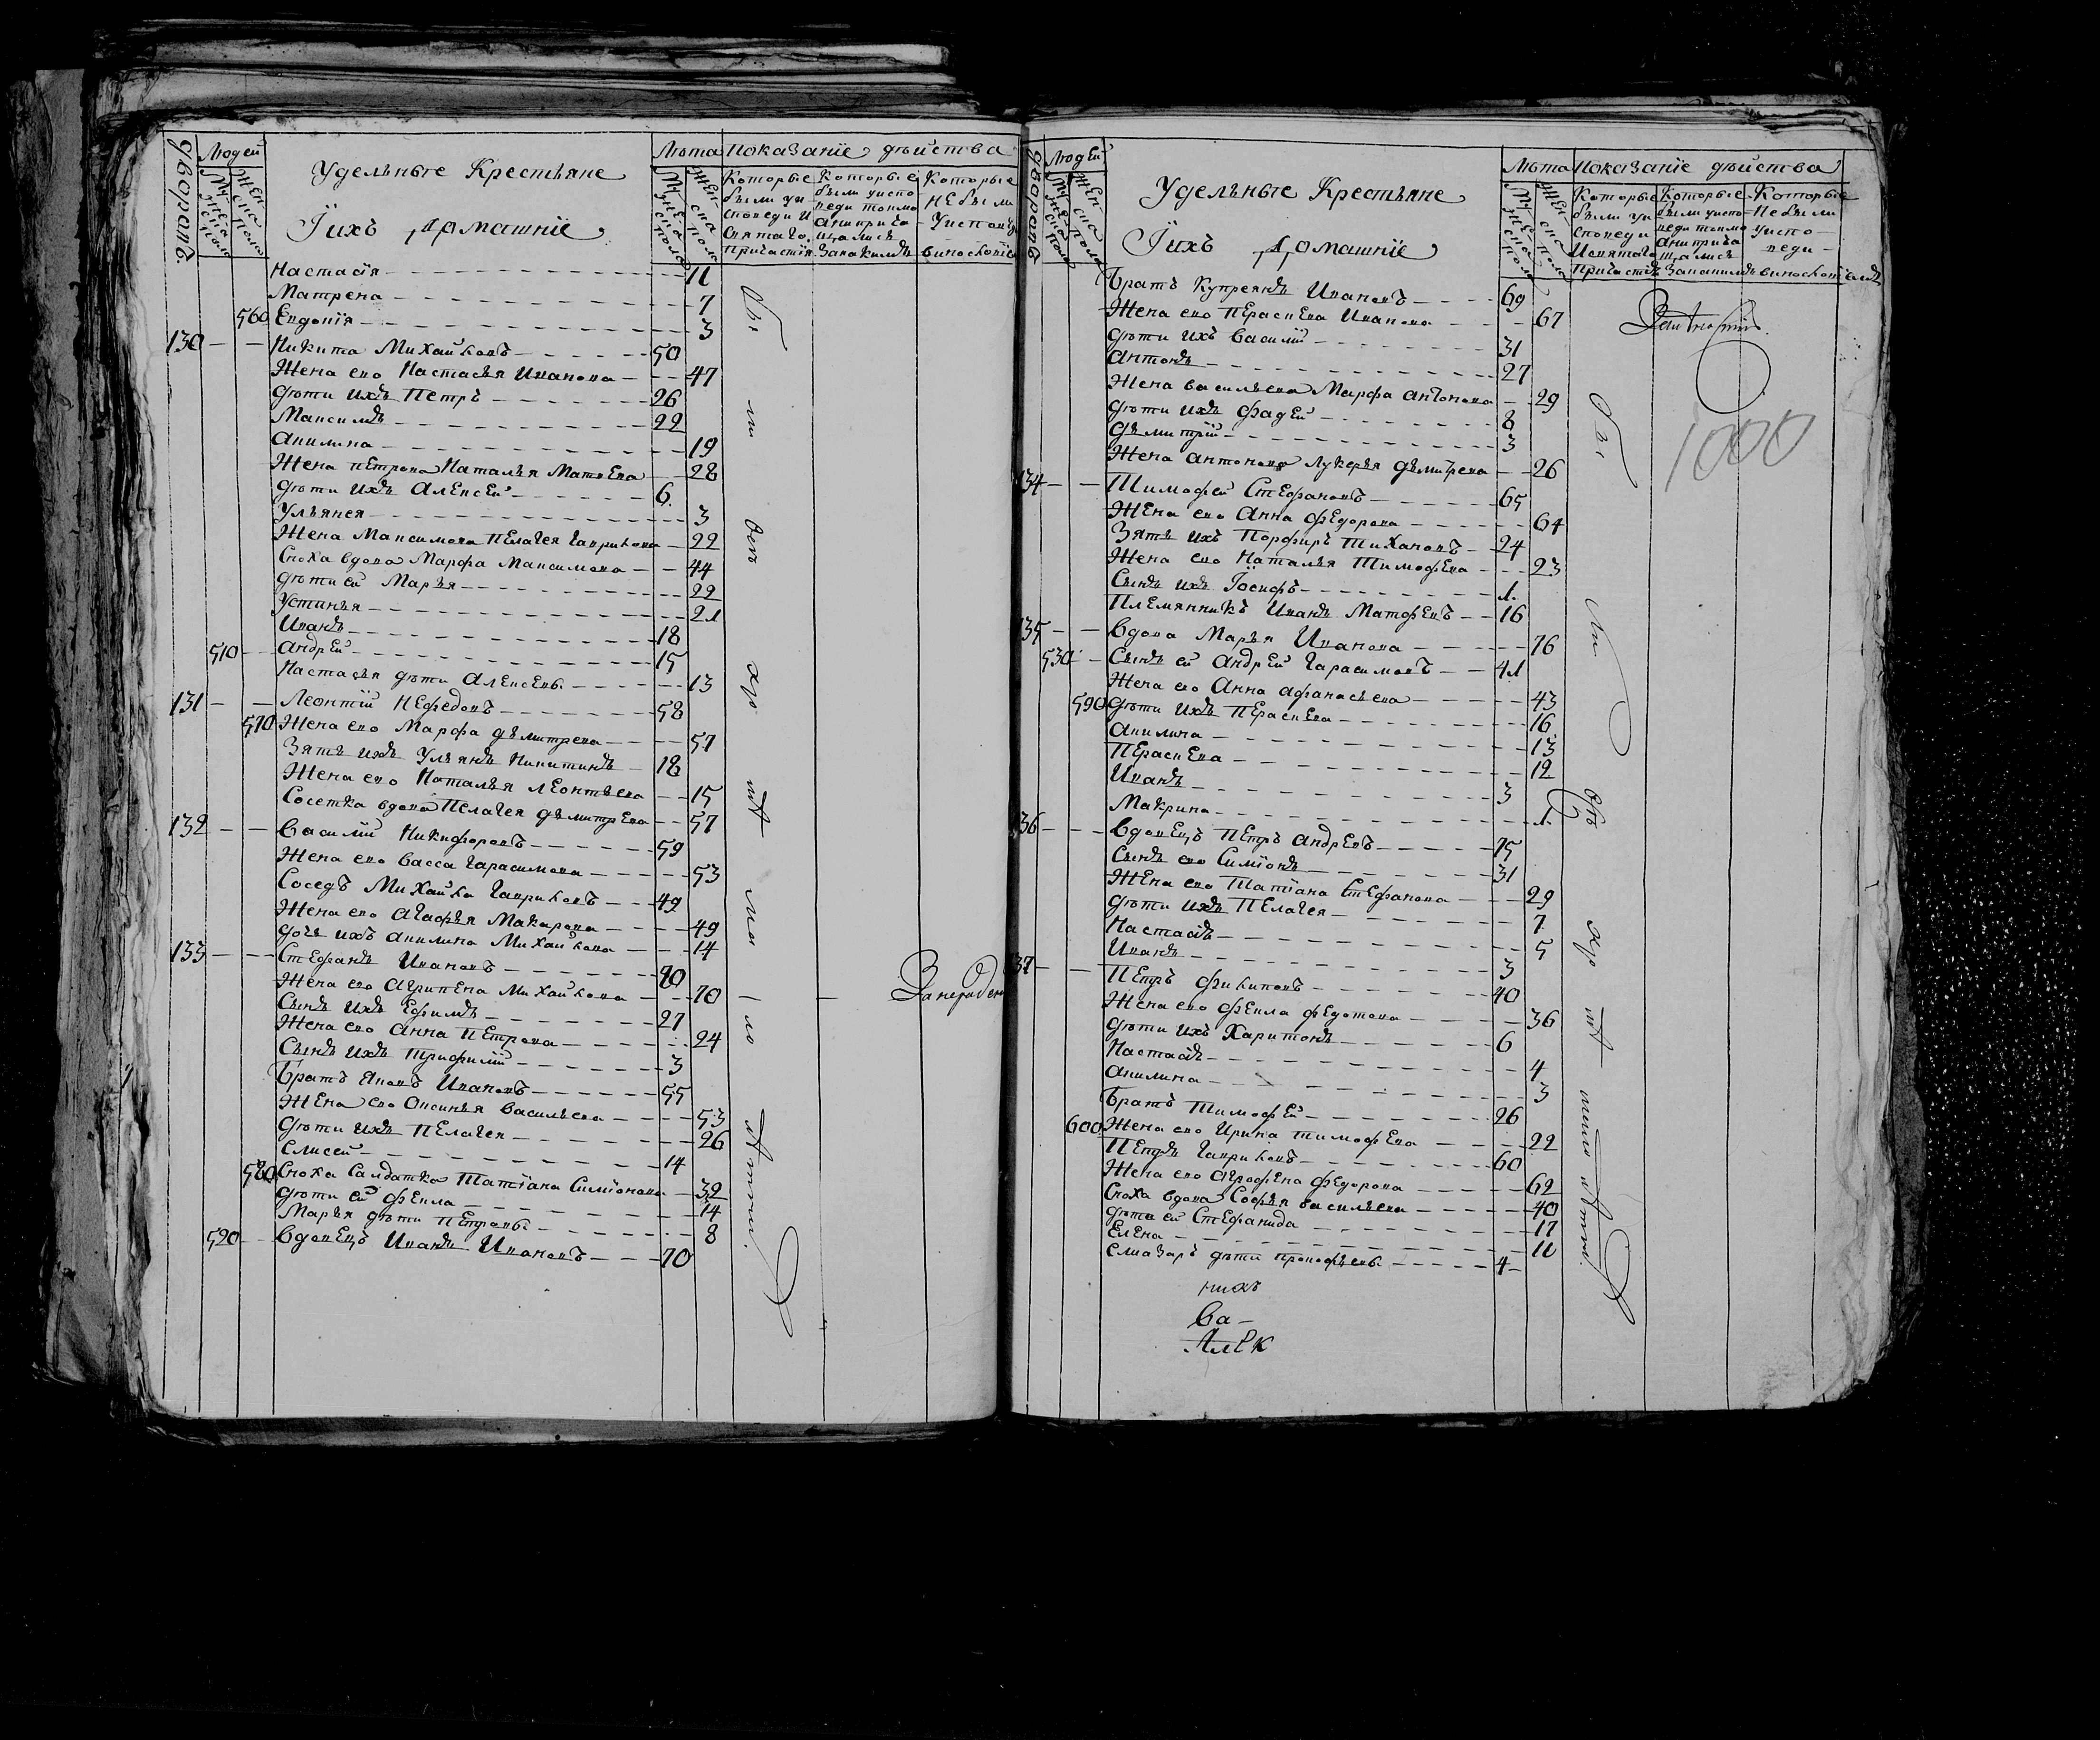 дворовъ
Людей
Мужеска пола
Женска пола
Удельные Крестьяне
Їихъ Домашніе
Лѣта
Мужеска пола
Женска пола
Показаніе дѣйства
Которые были уисповеди и святаго причастія
Которые были уисповеди токмо анипричащались
Которые небыли уисповеди
Настасія 11
Матрена 7
560 Евдокія 3
130 Никита Михайловъ 50
Жена ево Настасья Иванова 47
дѣти ихъ Петръ 26
Максимъ 22
Акилина 19
Жена петрова Наталья Матвева 28
дѣти ихъ Алексей 6
Ульянея 3
Жена Максимова Пелагея Гаврилова 22
Сноха вдова Марфа Максимова 44
дѣти ей Марья 22
Устинья 21
Иванъ 18
510 Андрей 15
Настасья дѣти Алексевы 13
131 Леонтій Нефедовъ 58
570 Жена ево Марфа дьмитрева 57
Зять ихъ Ульянъ Никитинъ 18
Жена ево Наталья Леонтьева 15
Соседка вдова Пелагея дьмитрева 57
132 Василій Никифоровъ 59
Жена ево Васса Гарасимова 53
Соседъ Михайла Гавриловъ 49
Жена ево Агафья Макарова 49
дочь ихъ Акилина Михайлова 14
133 Стефанъ Ивановъ 70
Жена ево Агрипена Михайлова 70
Сынъ ихъ Ефимъ 27
Жена ево Анна Петрова 24
Сынъ ихъ Трифилій 3
Братъ Яковъ Ивановъ 55
Жена ево Оксинья Васильева 53
дѣти ихъ Пелагея 26
Елисей 14
580 Сноха Салдатка Татіана Симіонова 32
дѣти ей Фекла 14
Марья дѣти Петровы 8
520 Вдовецъ Иванъ Ивановъ 70
дворовъ
Людей
Мужеска пола
Женска пола
Удельные Крестьяне
Їихъ Домашніе
Лѣта
Мужеска пола
Женска пола
Показаніе дѣйства
Которые были уисповеди Исвятаго причастія
Которые были уисповеди токмо анипричащались
Которые Небыли уисповеди
Братъ Купреянъ Ивановъ 69
Жена ево Пераскева Иванова 67
дѣти ихъ Василій 31
Антонъ 27
Жена васильева Марфа антонова 29
дѣти ихъ Фадей 8
дьмитрій 3
Жена антонова Лукерья дьмитрева 26
134 Тимофей Стефановъ 65
Жена ево Анна Федорова 64
Зять ихъ Порфиръ Тихановъ 24
Жена ево Наталья Тимофева 23
Сынъ ихъ Іосифъ 1
Племянникъ Иванъ Матфевъ 16
135 Вдова Марья Иванова 76
530 Сынъ ей Андрей Гарасимовъ 41
Жена ево Анна Афанасьева 43
590 дѣти ихъ Пераскева 16
Акилина 13
Пераскева 12
Иванъ 3
Макрина 1
136 Вдовецъ Петръ Андревъ 75
Сынъ ево Симіонъ 31
Жена ево Татіана Стефанова 29
дѣти ихъ Пелагея 7
Настасія 5
Иванъ 3
137 Петръ Филиповъ 40
Жена ево Фекла Федотова 36
дѣти ихъ Харитонъ 6
Настасія 4
Акилина 3
Братъ Тимофей 26
600 Жена ево Ирина Тимофева 22
Петръ Гавриловъ 60
Жена ево Аграфена Федорова 62
Сноха вдова Софья Васильева 40
дѣти ей Стефанида 17
Елена 11
Елиазаръ дѣти прокофьевы 4
1000
Ва-
Алек